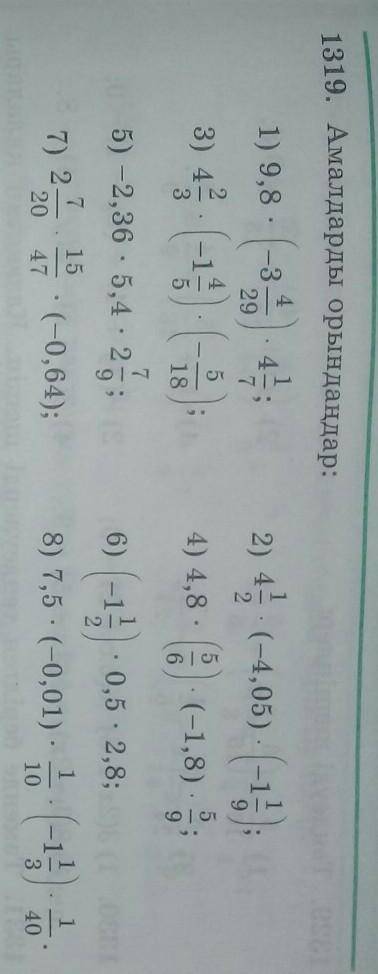 1319. Амалдарды орындаңдар:
1) 9,8 · (−3 4/29) · 4 1/7; 2) 4 1/2 · (−4,05) · (−1 1/9);
3) 4 2/3 · (−1 4/5) · (−5/18); 4) 4,8 · (5/6) · (−1,8) · 5/9;
5) −2,36 · 5,4 · 2 7/9; 6) (−1 1/2) · 0,5 · 2,8;
7) 2 7/20 · 15/47 · (−0,64); 8) 7,5 · (−0,01) · 1/10 · (−1 1/3) · 1/40.